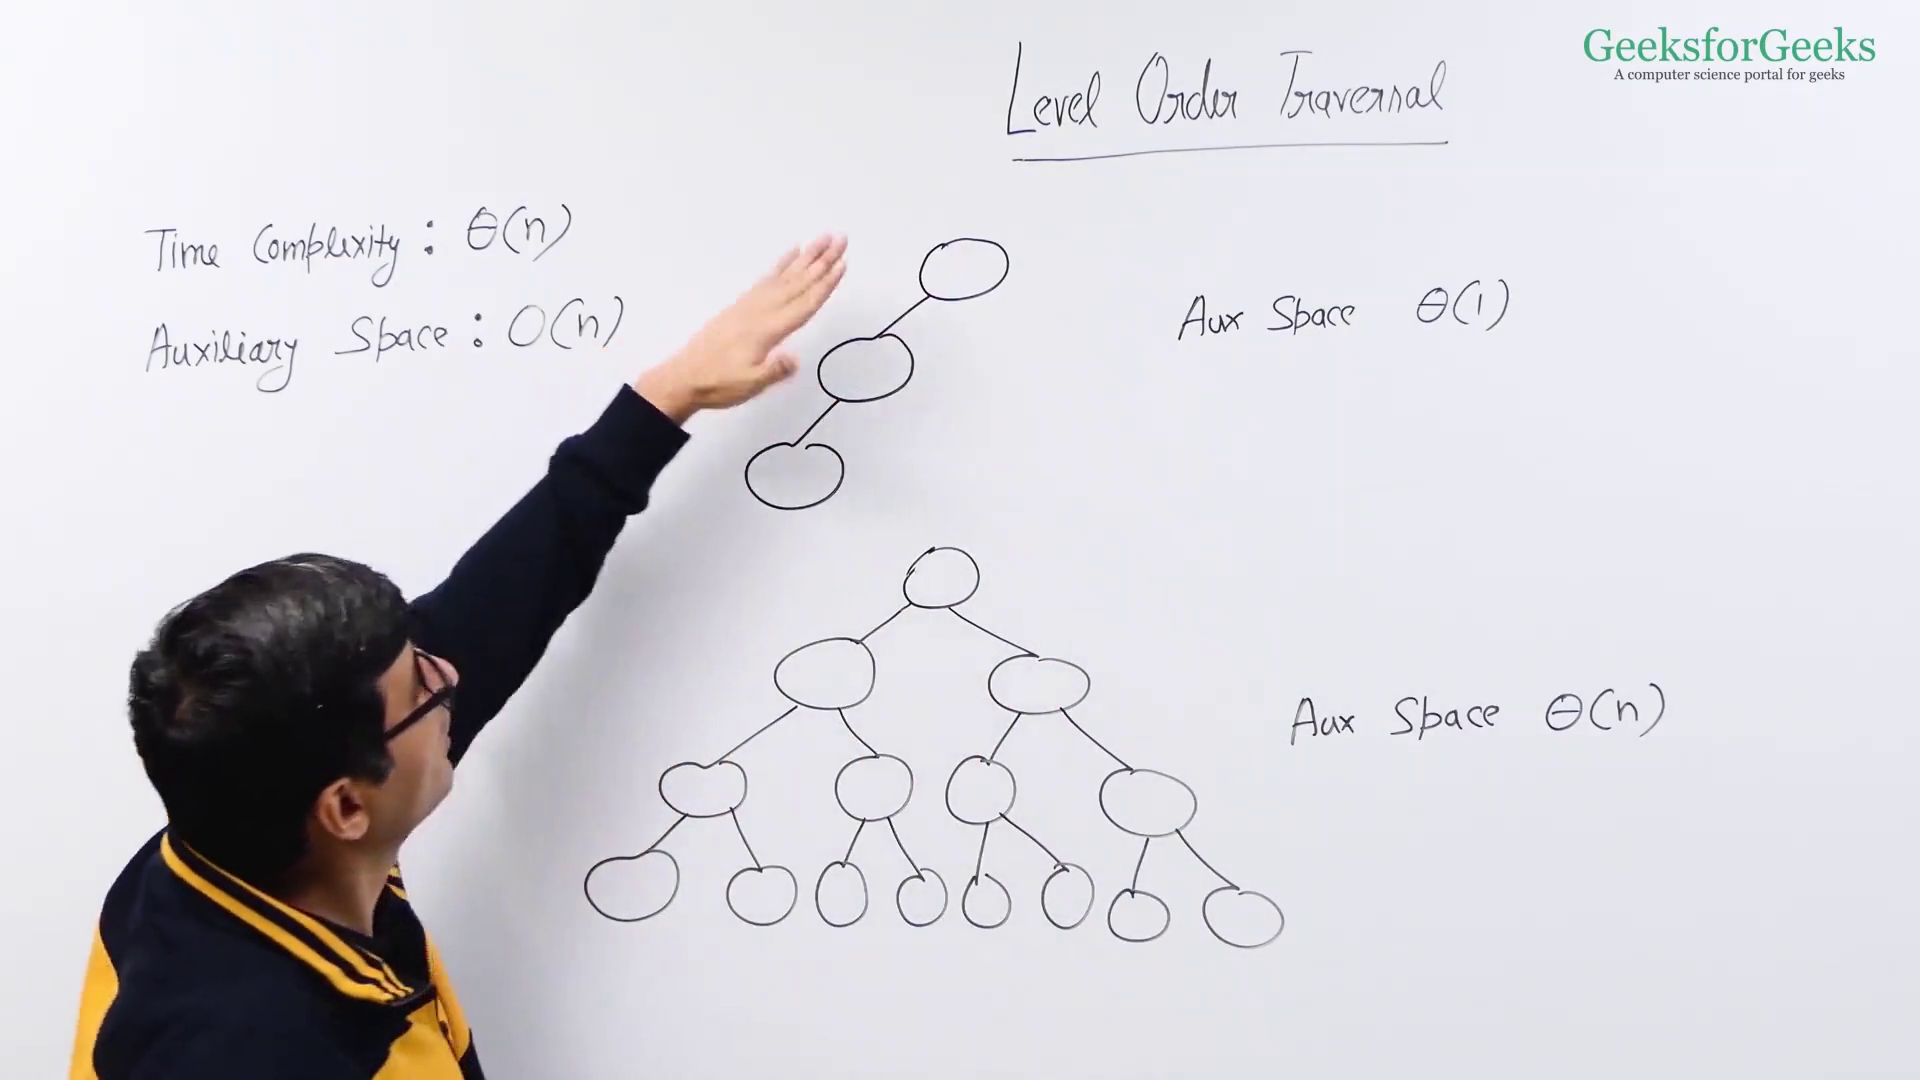 GeeksforGeeks
A computer science portal for geeks
Level Order Traversal
Time Complexity : Θ(n)
Auxiliary Space : O(n)
Aux Space Θ(1)
Aux Space Θ(n)